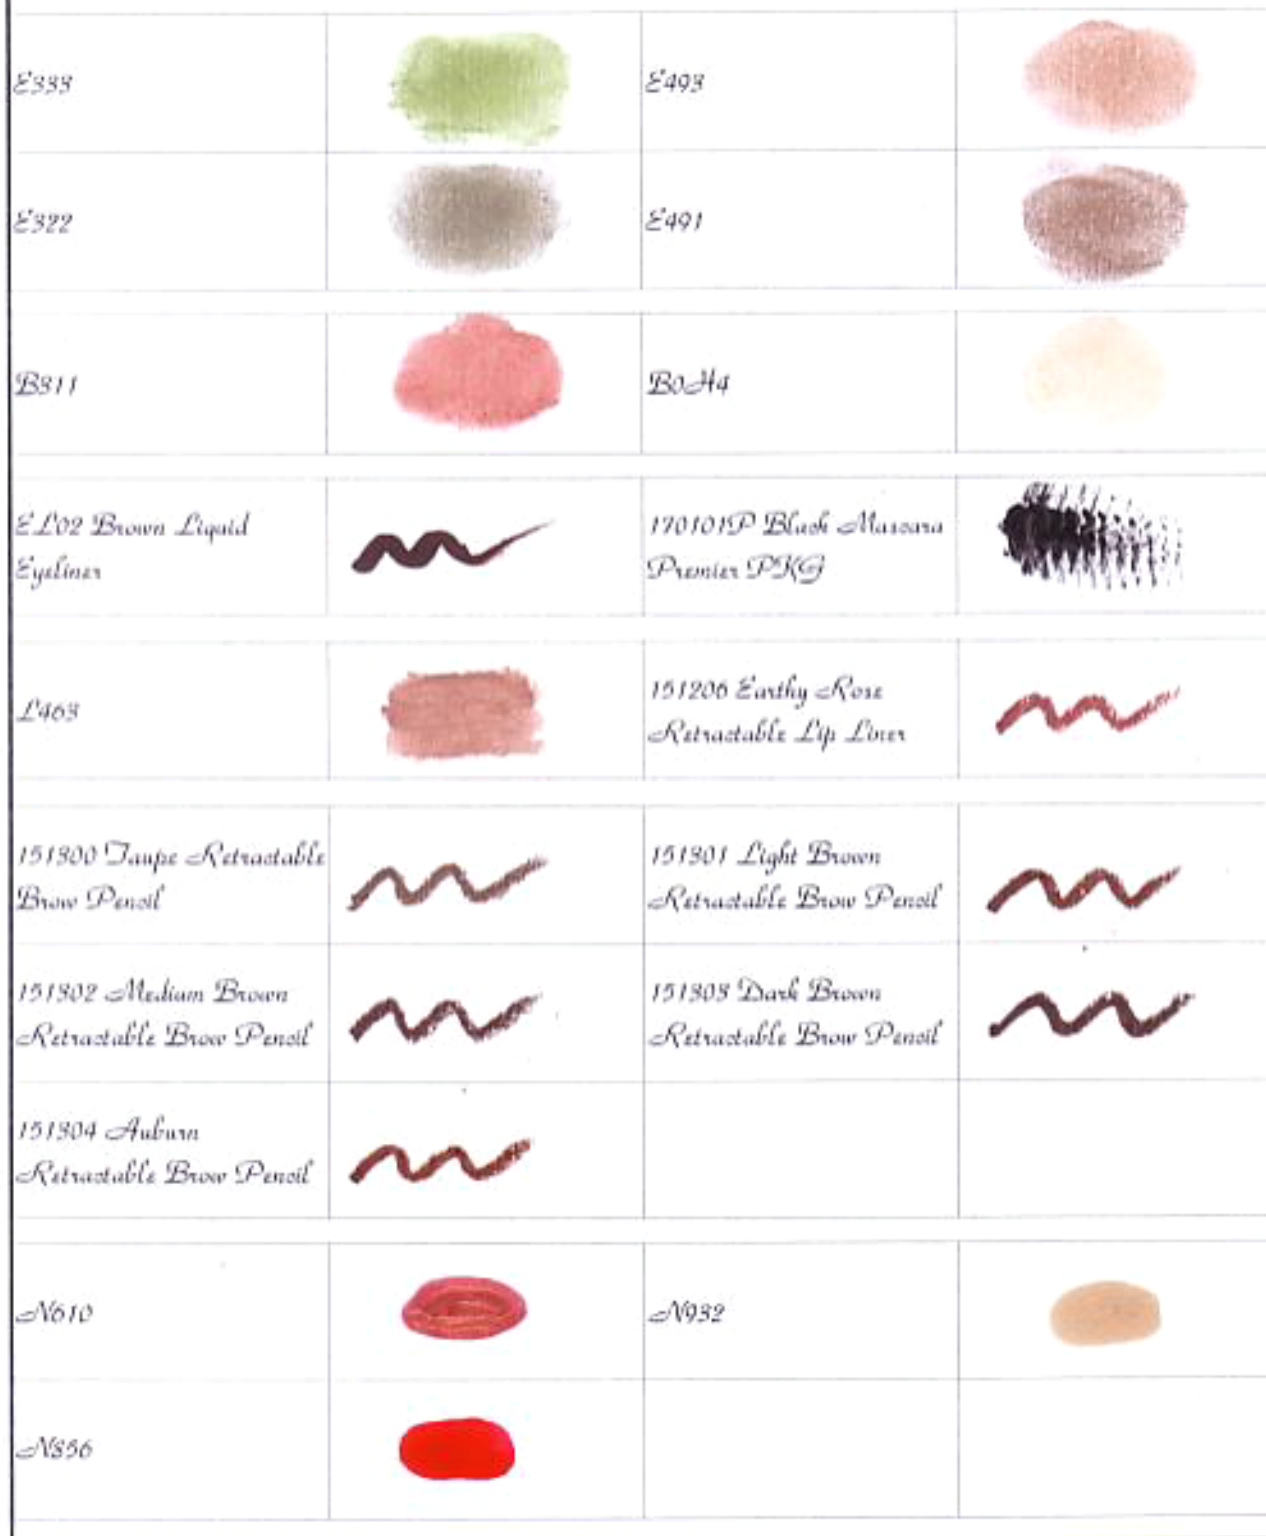 E333
E493
E322
E491
B311
B0H4
EL02 Brown Liquid
Eyeliner
170101P Black Mascara
Premier PKG
L463
151206 Earthy Rose
Retractable Lip Liner
151300 Taupe Retractable
Brow Pencil
151301 Light Brown
Retractable Brow Pencil
151302 Medium Brown
Retractable Brow Pencil
151303 Dark Brown
Retractable Brow Pencil
151304 Auburn
Retractable Brow Pencil
N610
N932
N856